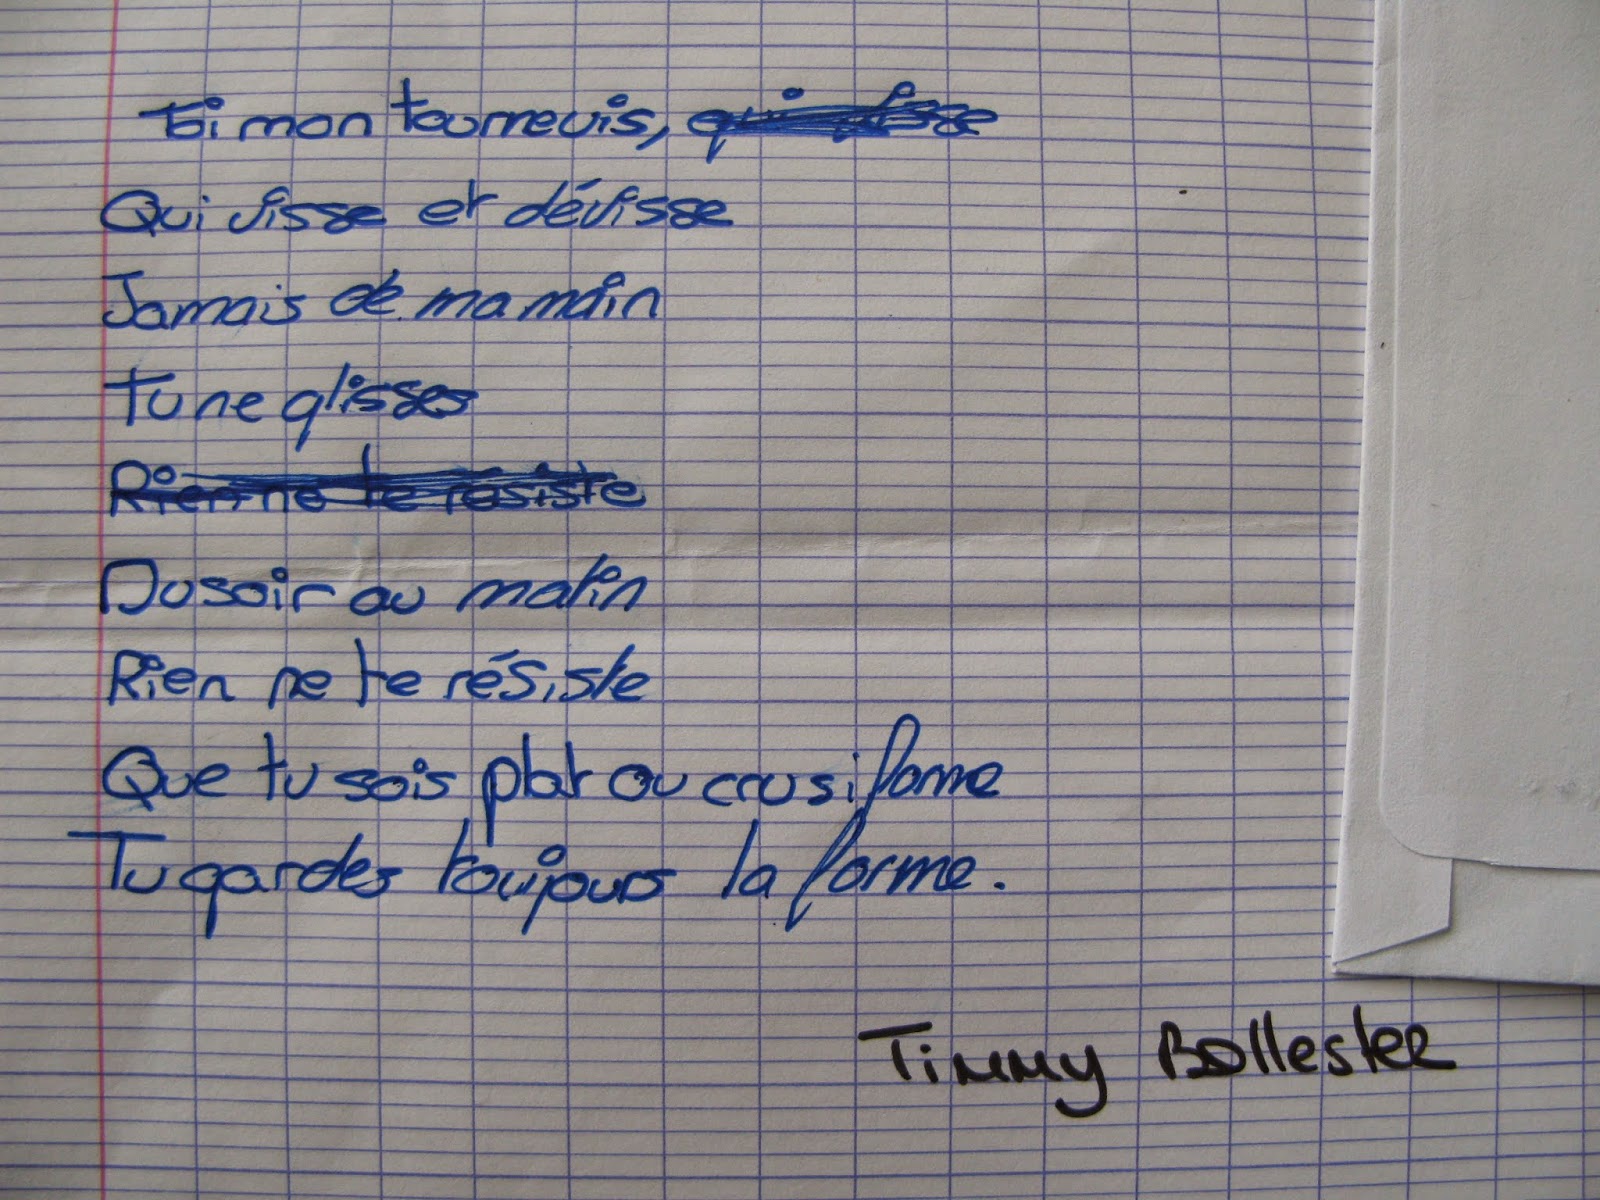 Toi mon tournevis, qui
Qui visse et dévisse
Jamais de ma main
Tu ne glisses
Rien ne te resiste
Du soir au matin
Rien ne te résiste
Que tu sois plat ou crusiforme
Tu gardes toujours la forme.
Timmy Ballester